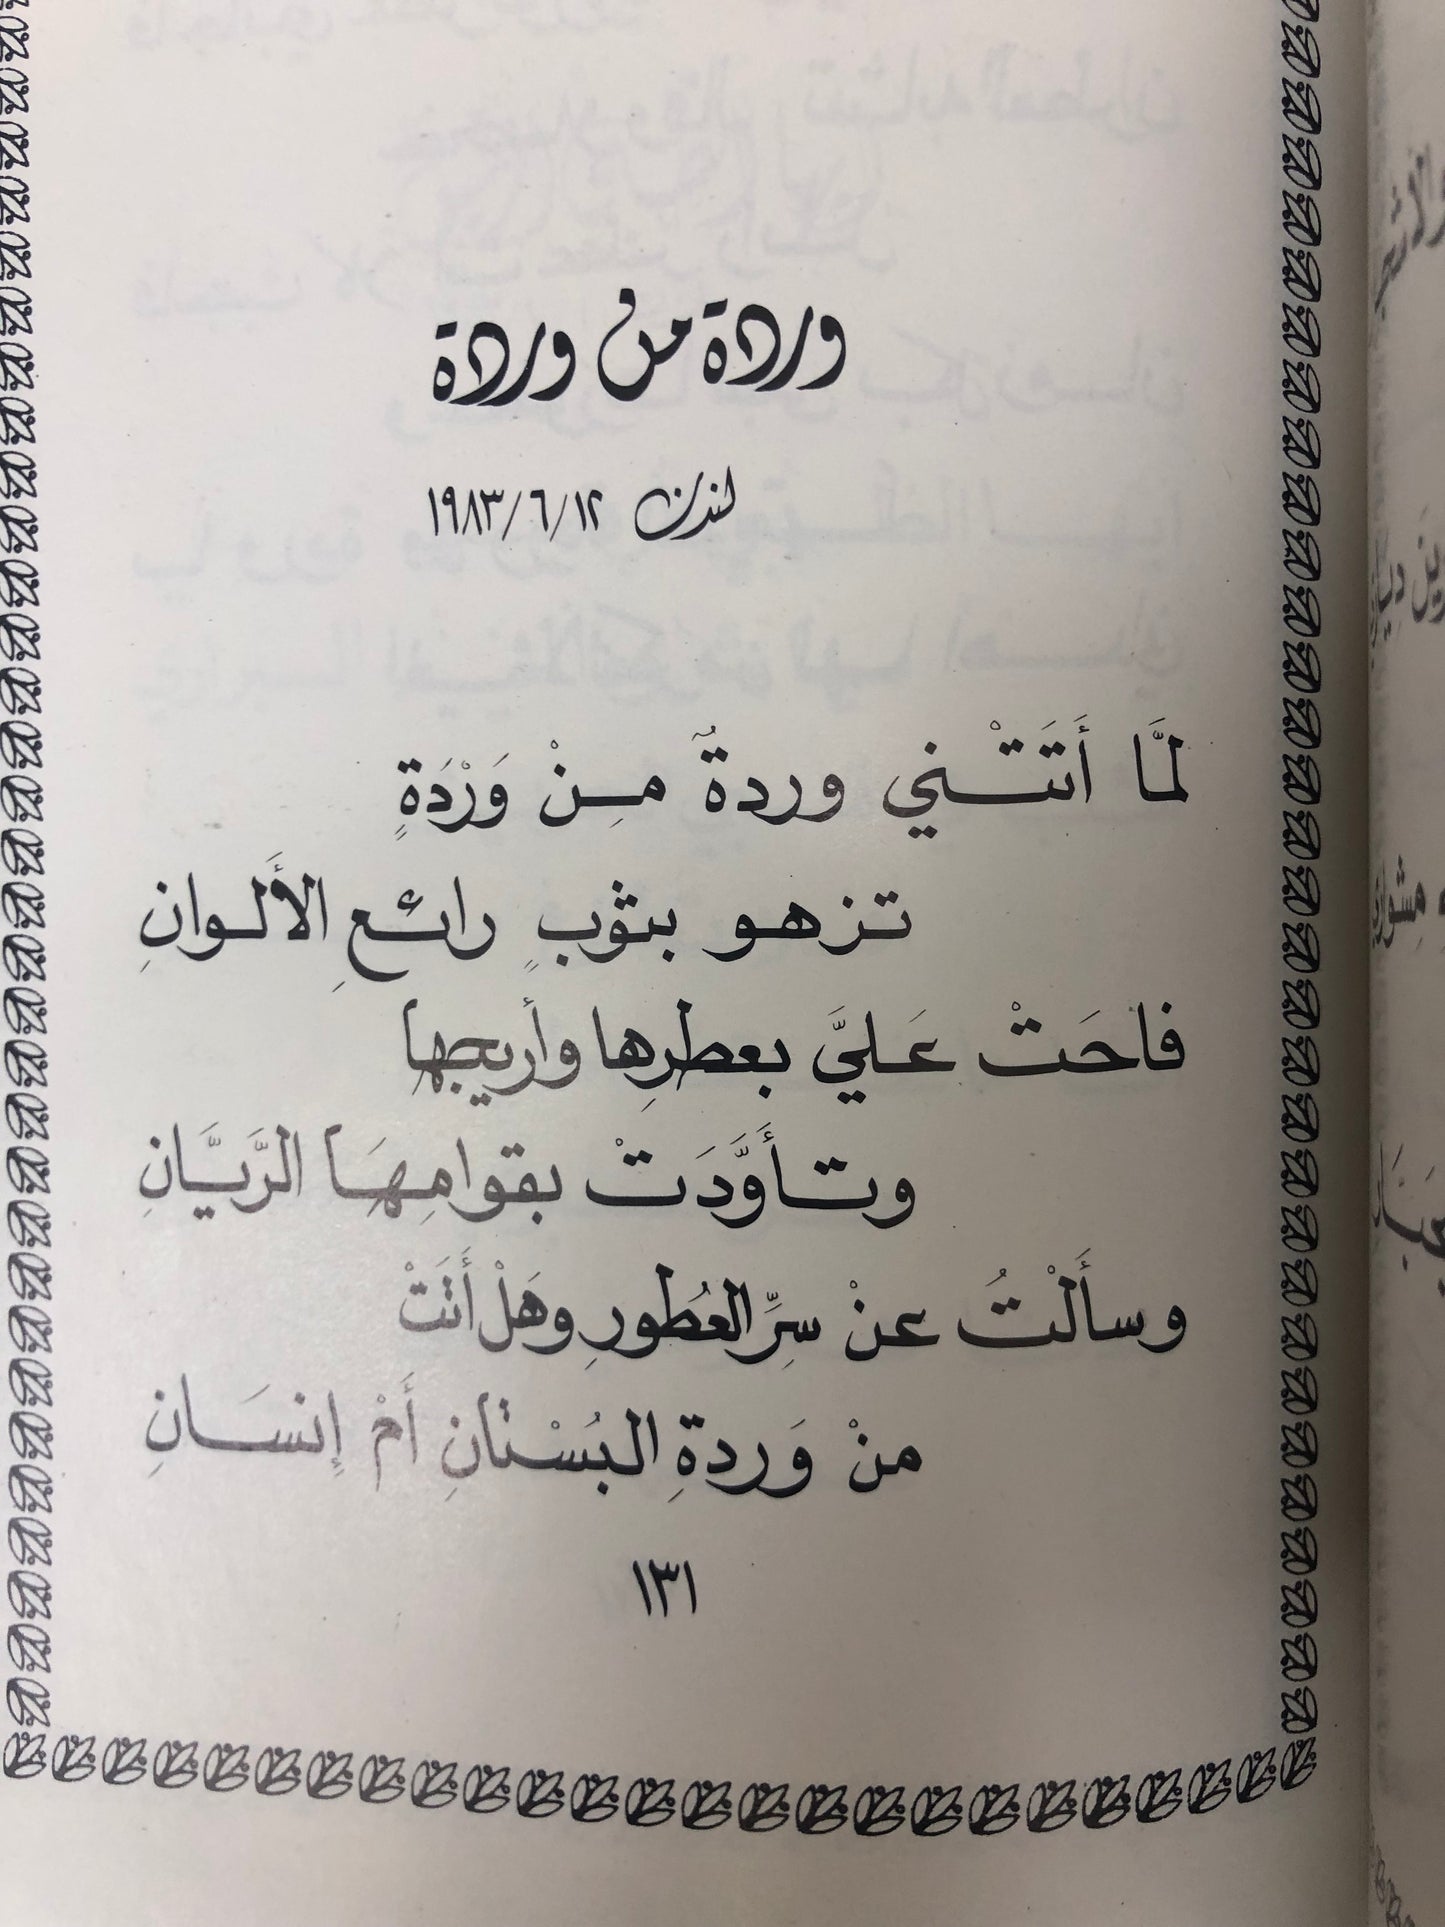 وردة من وردة
لندن ١٩٨٣/٦/١٢
لمَّا أَتَتْني وردةٌ مِنْ وَرْدَةٍ
تزهو بثوبٍ رائعِ الأَلوانِ
فاحَتْ عَليَّ بعطرِها وأَريجها
وتأَوَّدَتْ بقوامِهَا الرَّيَّانِ
وسأَلْتُ عنْ سِرِّ العُطورِ وهَلْ أَتَتْ
منْ وَردةِ البُسْتانِ أَمْ إِنسَانِ
١٣١